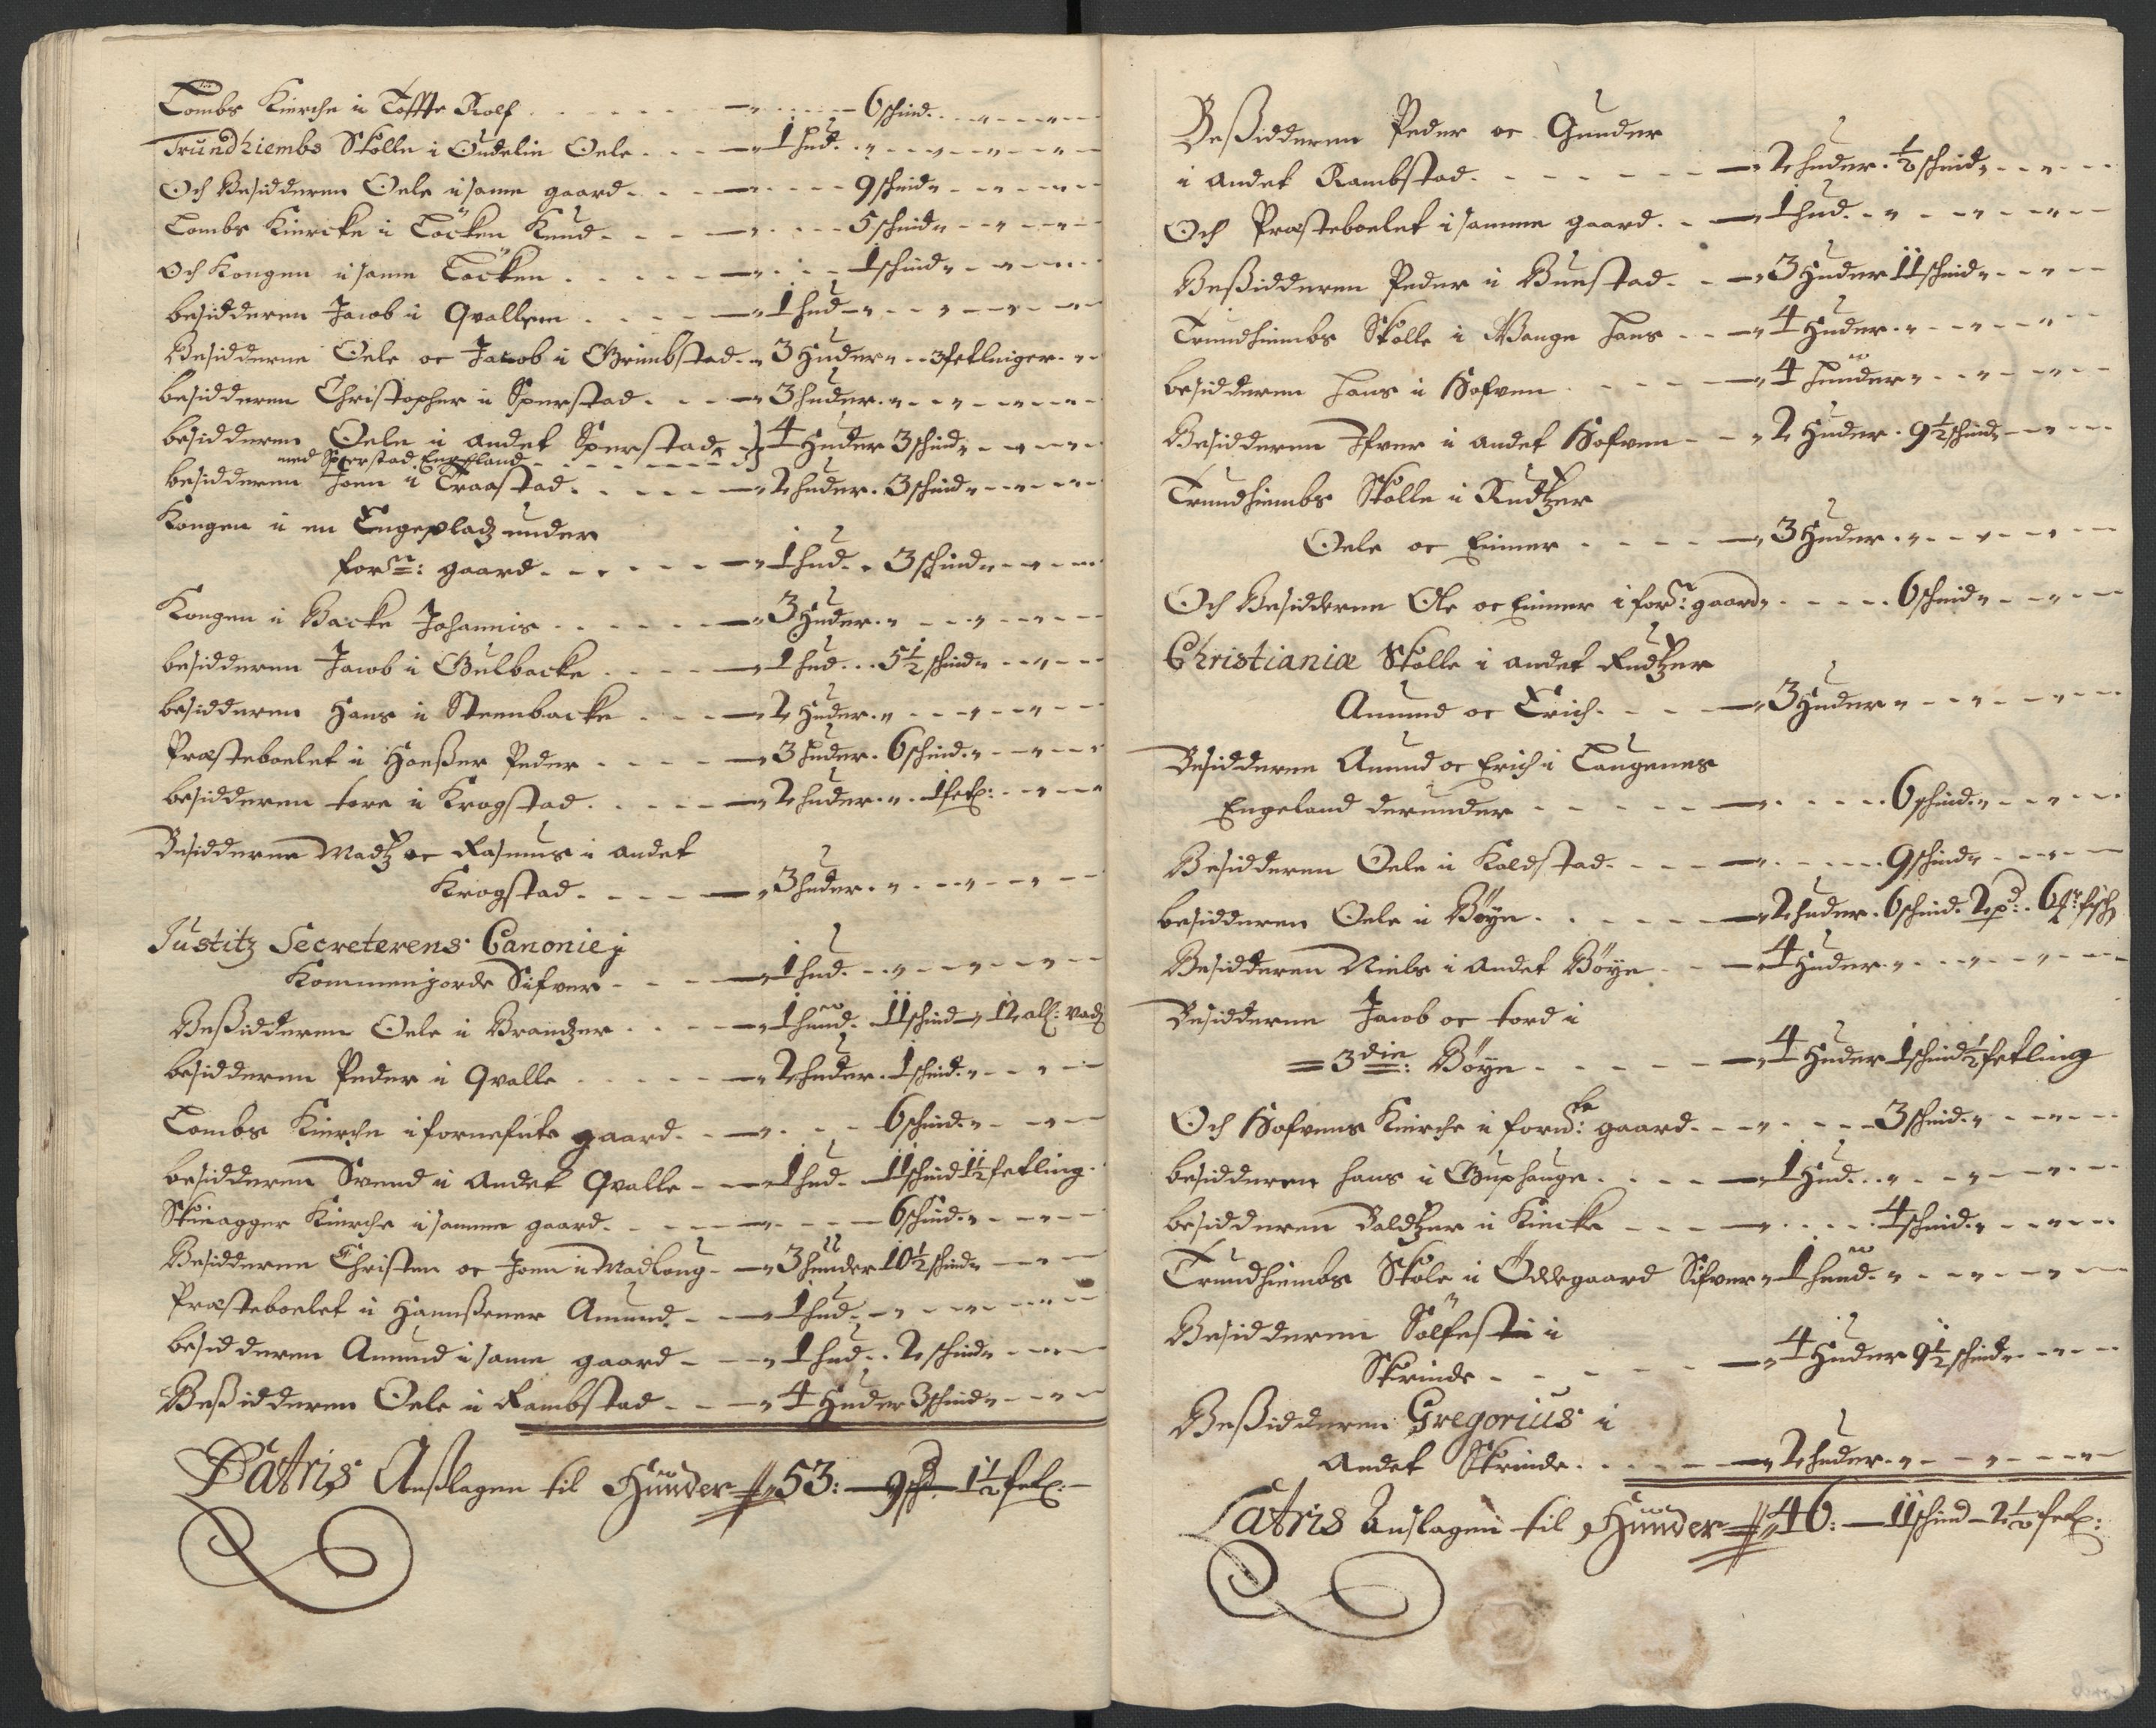 Tombs Kierche i Tofftr Rolf - - - 6 schind. - - -
Trundhiembs Skolle i Oudelin Oele - - - 1 hud. - - -
Och Besidderen Oele i same gaard - - - 9 schind - - -
Tombs Kiercke i Töcken Knud - - - 5 schind - - -
Och Kongen i same Töcken - - - 1 schind - - -
besidderen Jacob i Qvallem - - - 1 hud - - -
Besidderne Oele oc Jacob i Grimbstad - 3 Huder - 3 fetlniger - -
besidderen Christopher i Sperstad - - - 3 huder - - -
besidderen Oele i andet Sperstad } 4 Huder 3 schind - - -
med Sperstad Engeland
besidderen Joen i Traastad - - - 2 huder. 3 schind - - -
Kongen i en Engepladz under
forne: gaard - - - 1 hud - 3 schind - - -
Kongen i Backe Johannis - - - 3 Huder - - -
besidderen Jacob i Gulbacke - - - 1 hud - 5 1/2 schind - - -
besidderen Hans i Steenbacke - - - 2 Huder - - -
Præsteboelet i Hoeßer Peder - - - 3 huder. 6 schind - - -
besidderen tore i Krogstad - - - 2 huder - 1 fetl: - - -
Besidderne Madtz oc Rasmus i andet
Krogstad - - - 3 huder - - -
Justitz Secreterens Canonie j
Kommenjorde Sifver - - - 1 hud - - -
Beßidderen Oele i Brandzer - - - 1 hud. 11 schind 12 all: vadt
besidderen Peder i Qvalle - - - 2 huder. 1 schind - - -
Tombs Kierche i fornefnte gaard - - - 6 schind - - -
besidderen Svend i andet Qvalle - - 1 hud - 11 schind 1 1/2 fetling
Skieagger Kierche i samme gaard - - - 6 schind - - -
Besidderne Christen oc Joen i Madlaug - 3 hunder 10 1/2 schind - - -
Præsteboelet i Hamßener Amund - - 1 hud - - -
besidderen Amund i same gaard - - 1 hud - 2 schind - - -
Beßidderen Oele i Rambstad - - - 4 Huder 3 schind - - -
Latris Anßlagen til Hunder 53: - 9 schd - 1 1/2 fetl:
Beßidderen Peder oc Gunder
i andet Rambstad - - - 2 huder. 1/2 schind - - -
Och Præsteboelet i samme gaard - - 1 hud - - -
Beßidderen Peder i Buestad - - 3 Huder 11 schind - - -
Trundhiembs Skolle i Wange Hans - - 4 Huder - - -
besidderen Hans i Hofven - - - 4 hunder - - -
Besidderen Ifver i andet Hofven - - 2 Huder. 9 1/2 schind - - -
Trundhiembs Skolle i Rudtzer
Oele oc Einner - - - 3 Huder - - -
Och Besidderne Ole oc Einner i forne: gaard - - 6 schind - - -
Christianiæ Skolle i andet Rudtzer
Amund oc Erich - - - 3 Huder - - -
Besidderne Amund oc Erich i Taugenes
Engeland derunder - - - 6 schind - - -
Besidderen Oele i Koldstad - - - 9 schind - - -
besidderen Oele i Böye - - - 2 huder. 6 schind. 2 pd: 6
Besidderen Niels i andet Böye - - 4 Huder - - -
Besidderne Jacob oc tord i
3die: Böye - - - 4 Huder 1 schind 1/2 fetling
Och Hofvens Kierche i fornte: gaard - - - 3 schind - - -
besidderen Hans i Guphauge - - - 1 Hud - - -
besidderen Baldtzer i Kiercke - - - 4 schind - - -
Trundhiembs Skole i Ödegaard Sifver 1 hund - - -
Besidderen Sölfeste i
Skrinde - - - 4 Huder 9 1/2 schind - - -
Beßidderen Gregorius i
Andet Skrinde - - - 2 huder - - -
Latris Anslagen til Hunder 46: - 11 schind - 2 1/2 fetl: